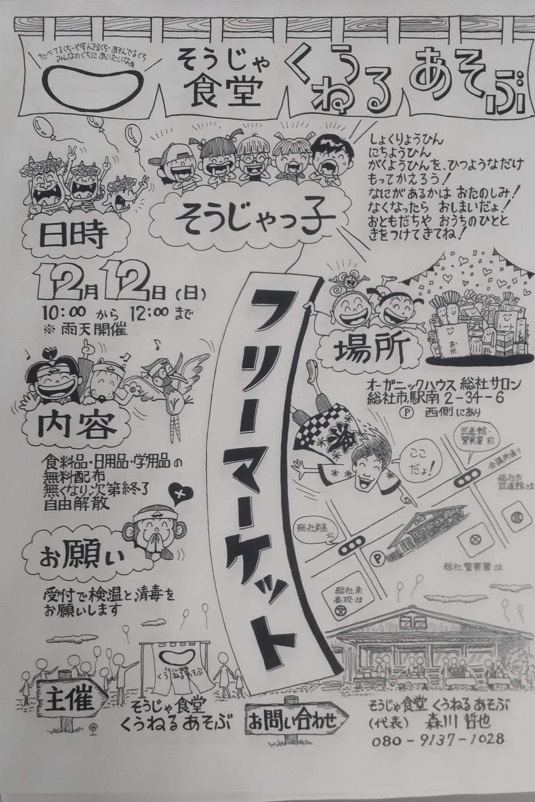 たべてるくち・やすんでるくち・あそんでるくち
みんなのくちにあいたいなぁ
そうじゃ
食堂
くうねる あそぶ
しょくりょうひん
にちようひん
がくようひんを、ひつようなだけ
もってかえろう!
なにがあるかは おたのしみ!
なくなったら おしまいだょ!
おともだちや おうちのひとと
きをつけてきてね!
そうじゃっ子
日時
12月12日(日)
10:00 から 12:00 まで
※ 雨天開催
フリーマーケット
場所
お米
オーガニックハウス 総社サロン
総社市駅南 2-34-6
P 西側にあり
内容
食料品・日用品・学用品の
無料配布
無くなり次第終了
自由解散
ここ
だょ!
武道館・
警察署 前
総社市
武道館
総社警察署
総社南
高校
P
お願い
受付で検温と消毒を
お願いします
主催
そうじゃ食堂
くうねる あそぶ
お問い合わせ
そうじゃ食堂 くうねる あそぶ
(代表) 森川 哲也
080-9137-1028